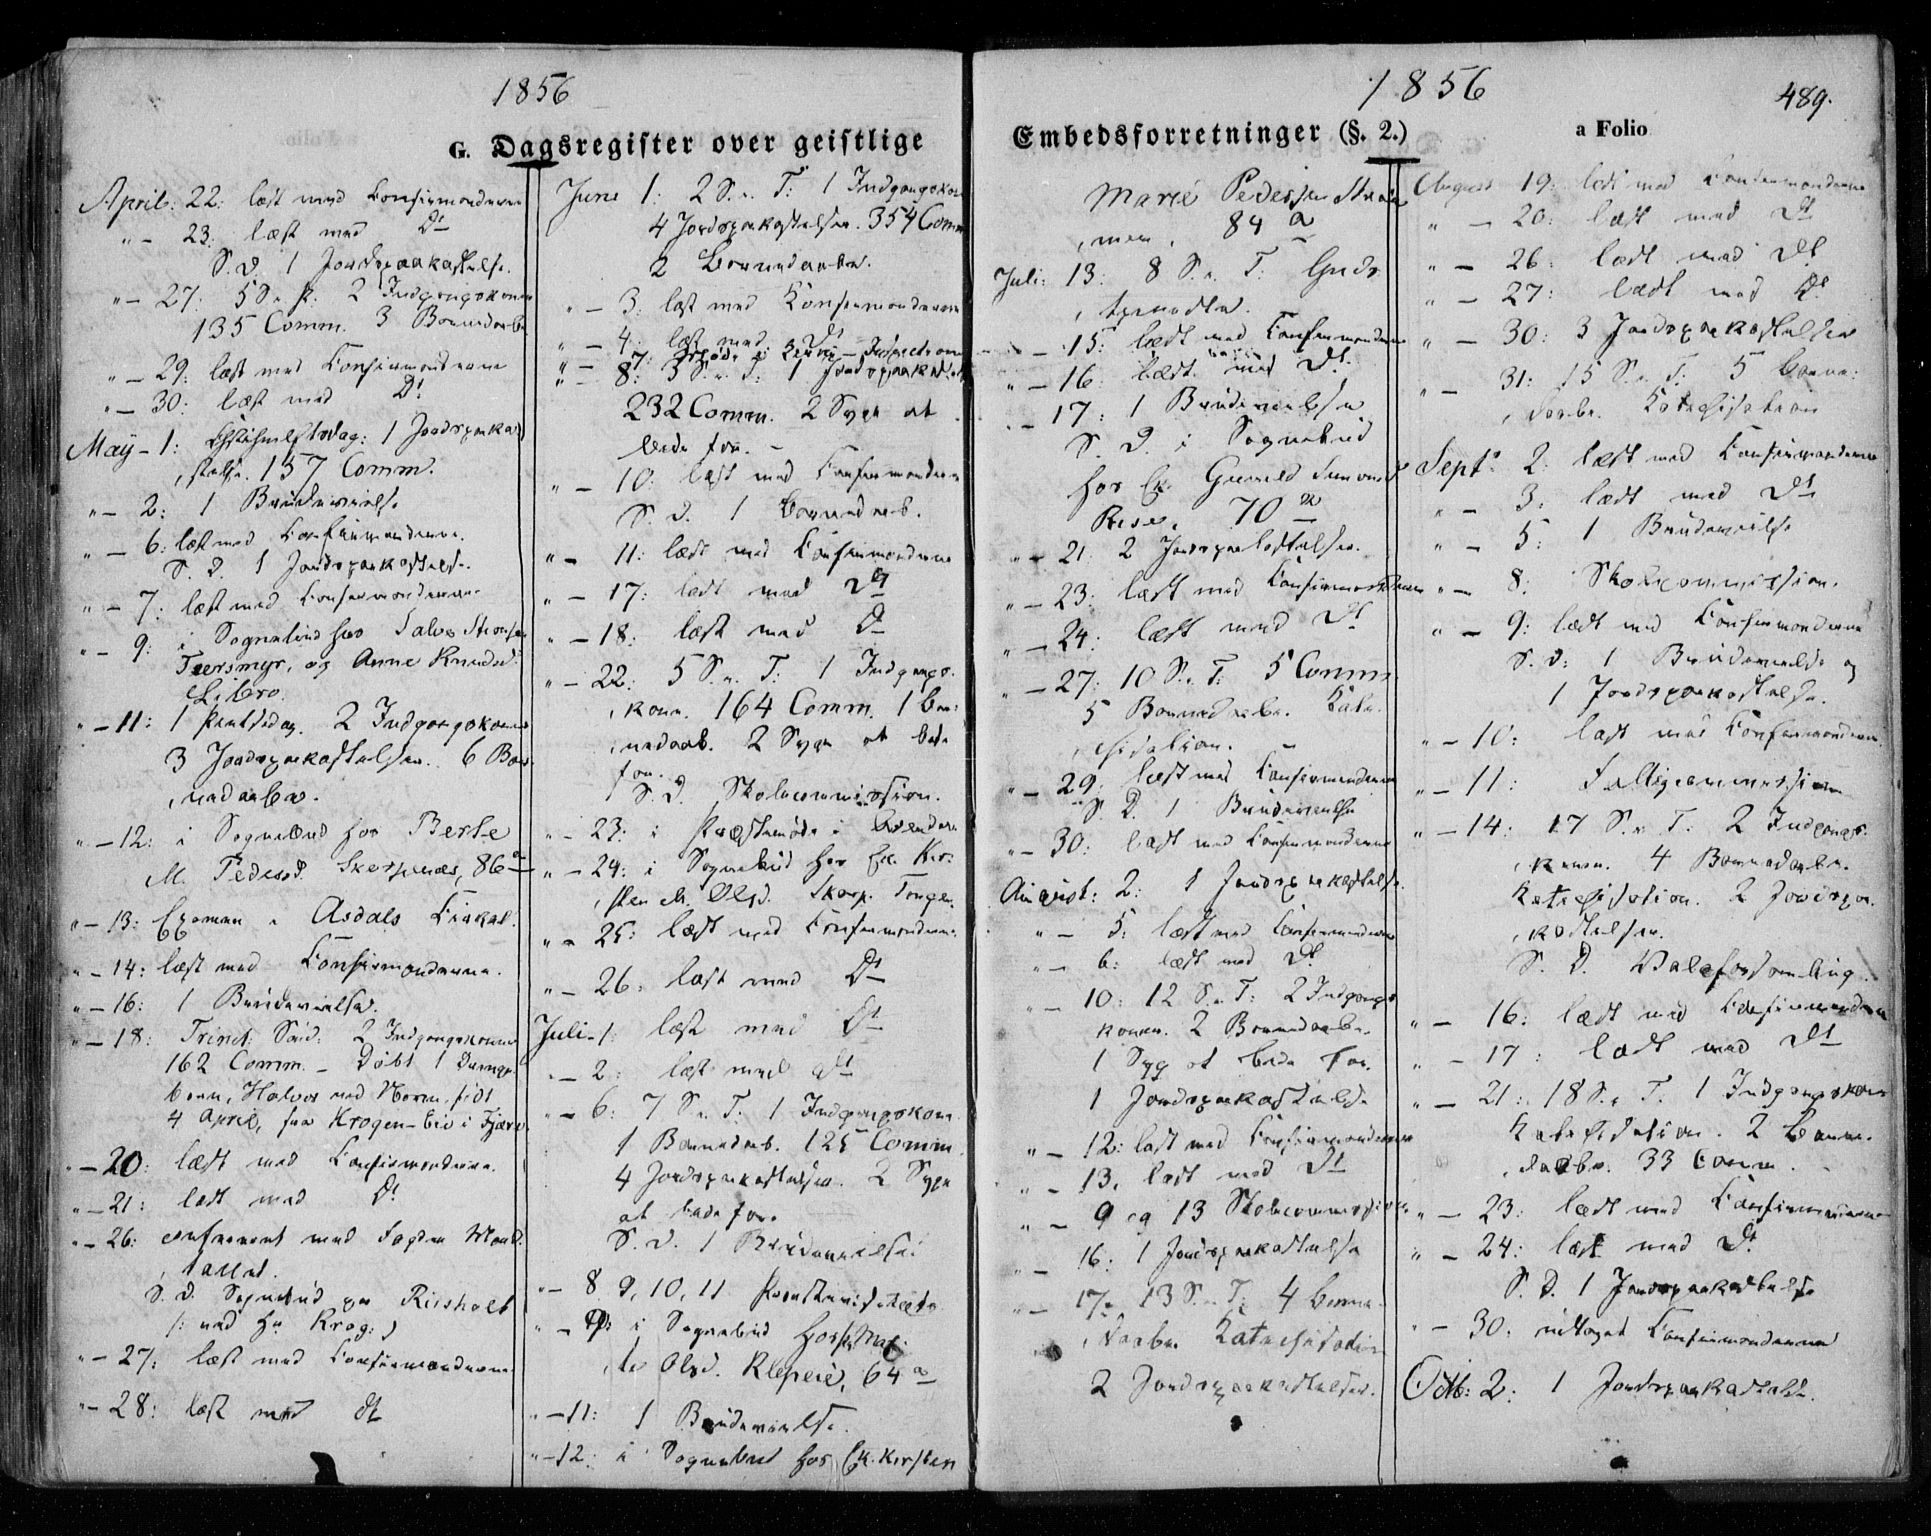 1856
G. Dagsregister over geistlige
April: 22: læst med Confirmanderne
" - 23: læst med Dt
S. D. 1 Jordspaakastelse.
" - 27: 5 S. e. P. 2 Indgangskoner
135 Comm. 3 Barnedaabe
" - 29: læst med Confirmanderne
" - 30: læst med Dt
May - 1: Christi Himmelf dag: 1 Jordspaaka
, stelse. 157 Comm.
" - 2: 1 Brudevielse
" - 6: læst med Confirmanderne.
S. D. 1 Jordspaakastelse.
" - 7: læst med Confirmanderne.
" - 9: i Sognebud hos Salve
Tversmyr, og Anne Knudsd.
" - 11: 1 Pintsedag. 2 Indgangskoner
3 Jordspaakastelser. 6 Bar
, nedaabe.
" - 12: i Sognebud hos Berte
M. Pedersd. Skerpenæs, 86 a
" - 13: Examen i Asdals
" - 14: læst med Confirmanderne.
" - 16: 1 Brudevielse.
" - 18: Trinit: Sønd: 2 Indgangskoner
162 Comm. - Døbt 1
barn, Halvor ved Navn, født
4 April, fra Krogen - i Fjære.
" - 20: læst med Confirmanderne.
" - 21: læst med Dt
" - 26: confereret med Fogden
S. D. Sognebud paa Riisholt
(: ved Hr Krog :)
" - 27: læst med Confirmanderne
" - 28: læst med Dt
June 1: 2 S. e. T: 1 Indgangskone
4 Jordspaakastelser. 354 Comm
2 Barnedaabe.
" - 3: læst med Confirmanderne
" - 4: læst med Dt
" - 7:
" - 8: 3 S. e. T: 1 Jordspaakastelse
232 Comm. 2 Syge at
bede for. -
" - 10: læst med Confirmanderne
S. D. 1 Barnedaab.
" - 11: læst med Confirmanderne
" - 17: læst med Dt
" - 18: læst med Dt
" - 22: 5 S. e. T: 1 Indgangs
, kone. 164 Comm. 1 Bar:
, nedaab. 2 Syge at bede
for.
S. D. Skolecommission.
" - 23: i Præstemøde i Arendal
" - 24: i Sognebud hos Ek. Kir:
, sten M. Olsd.
" - 25: læst med Confirmanderne.
" - 26: læst med Dt
Juli - 1: læst med Dt
" - 2: læst med Dt
" - 6: 7 S. e. T: 1 Indgangskone
1 Barnedaab. 125 Comm.
4 Jordspaakastelser. 2 Syge
at bede for.
S. D. 1 Brudevielse.
" - 8, 9, 10, 11
" - 9: i Sognebud hos
Olsd. Klepeie, 64 a
" - 11: 1 Brudevielse.
" - 12: i Sognebud hos Ek. Kirsten
1856
489.
Embedsforretninger (§. 2.)
a Folio
Marie Pedersen
84 a
Juli: 13: 8 S. e. T: Guds
, tjeneste.
" - 15: læst med Confirmanderne
" - 16: læst med Dt
" - 17: 1 Brudevielse
S. D. i Sognebud
hos Ek. Gunild
70 a
" - 21: 2 Jordspaakastelser.
" - 23: læst med Confirmanderne
" - 24: læst med Dt
" - 27: 10 S. e. T: 5 Comm.
5 Barnedaabe. Kate
, chisation.
" - 29: læst med Confirmanderne
S. D. 1 Brudevielse
" - 30: læst med Confirmanderne
August: 2: 1 Jordspaakastelse.
" - 5: læst med Confirmanderne
" - 6: læst med Dt
" - 10: 12 S. e. T: 2 Indgangs
koner. 2 Barnedaabe.
1 Syg at bede for.
1 Jordspaakastelse
" - 12: læst med Confirmanderne
" - 13: læst med Dt
" - 9 og 13 Skolecommission
" - 16: 1 Jordspaakastelse
" - 17: 13 S. e. T: 4 Barne
, daabe. Katechisation
2 Jordspaakastelser.
August 19: læst med Confirmanderne
" - 20: læst med Dt
" - 26: læst med Dt
" - 27: læst med Dt
" - 30: 3 Jordspaakastelser
" - 31: 15 S. e. T. 5 Barne:
, daabe. Katechisation
Sept: 2: læst med Confirmanderne
" - 3: læst med Dt
" - 5: 1 Brudevielse
" - 8: Skolecommission.
" - 9: læst med Confirmanderne
S. D: 1 Brudevielse og
1 Jordspaakastelse.
" - 10: læst med Confirmanderne.
" - 11:
" - 14: 17 S. e. T: 2 Indgangs:
, koner. 4 Barnedaabe.
Katechisation. 2 Jordspaa
, kastelser.
S. D. Valgforsamling.
" - 16: læst med Confirmanderne
" - 17: læst med Dt
" - 21: 18 S. e. T. 1 Indgangskone
Katechisation. 2 Barne.
, daabe. 33 Comm.
" - 23: læst med Confirmanderne
" - 24: læst med Dt
S. D. 1 Jordspaakastelse
" - 30: Confirmanderne
Octb: 2: 1 Jordspaakastelse.